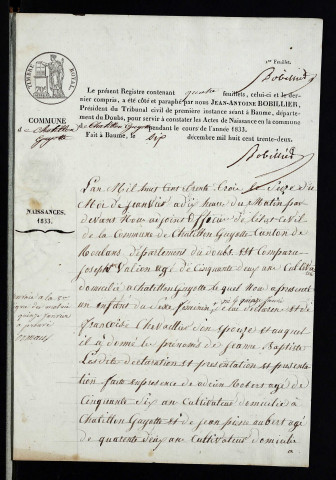 1er Feuillet.
TIMBRE ROYAL.
Bobillier
Le présent Registre contenant quatre feuillets, celui-ci et le der-
nier compris, a été coté et paraphé par nous JEAN-ANTOINE BOBILLIER,
Président du Tribunal civil de première instance séant à Baume, départe-
ment du Doubs, pour servir à constater les Actes de Naissance en la commune
de Chatillon Guyotte pendant le cours de l'année 1833.
Fait à Baume, le dix décembre mil huit cent trente-deux.
Bobillier
COMMUNE
de Chatillon
Guyotte
NAISSANCES.
1833.
L'an Mil huit Cent trente trois le Seize du
Mois de janvier a dix heures du Matin par
devant Nous adjoint officier de l'état Civil
de la Commune de Chatillon Guyotte Canton de
Roulans département du doubs Est Comparu
joseph Valion agé de Cinquante deux ans Cultivateur
domicilié a Chatillon Guyotte le quel Nous a présenté
un enfant du Sexe féminin
déclarant et de
francoise Chevaillier Son épouse et auquel
il a donné le prénoms de jeanne Baptiste
Les dite déclaration et présentation
faite en présence de Robert agé de
Cinquante dix ans Cultivateur domicilié a
Chatillon Guyotte et de jean pierre aubert agé
de quarante deux ans Cultivateur domicilié